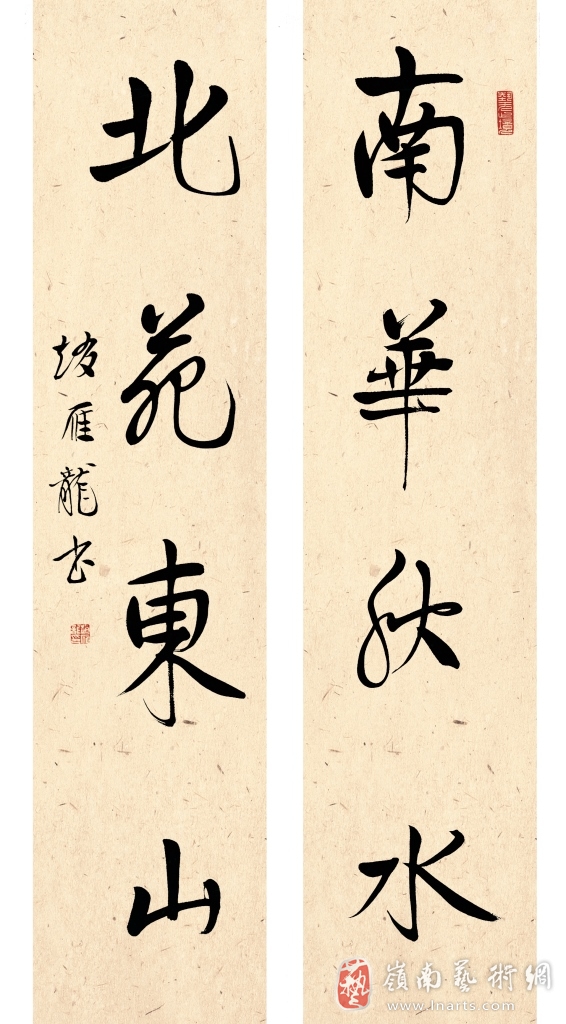 南華秋水
北苑東山
趙雁龍書
嶺南藝術網
www.lnarts.com